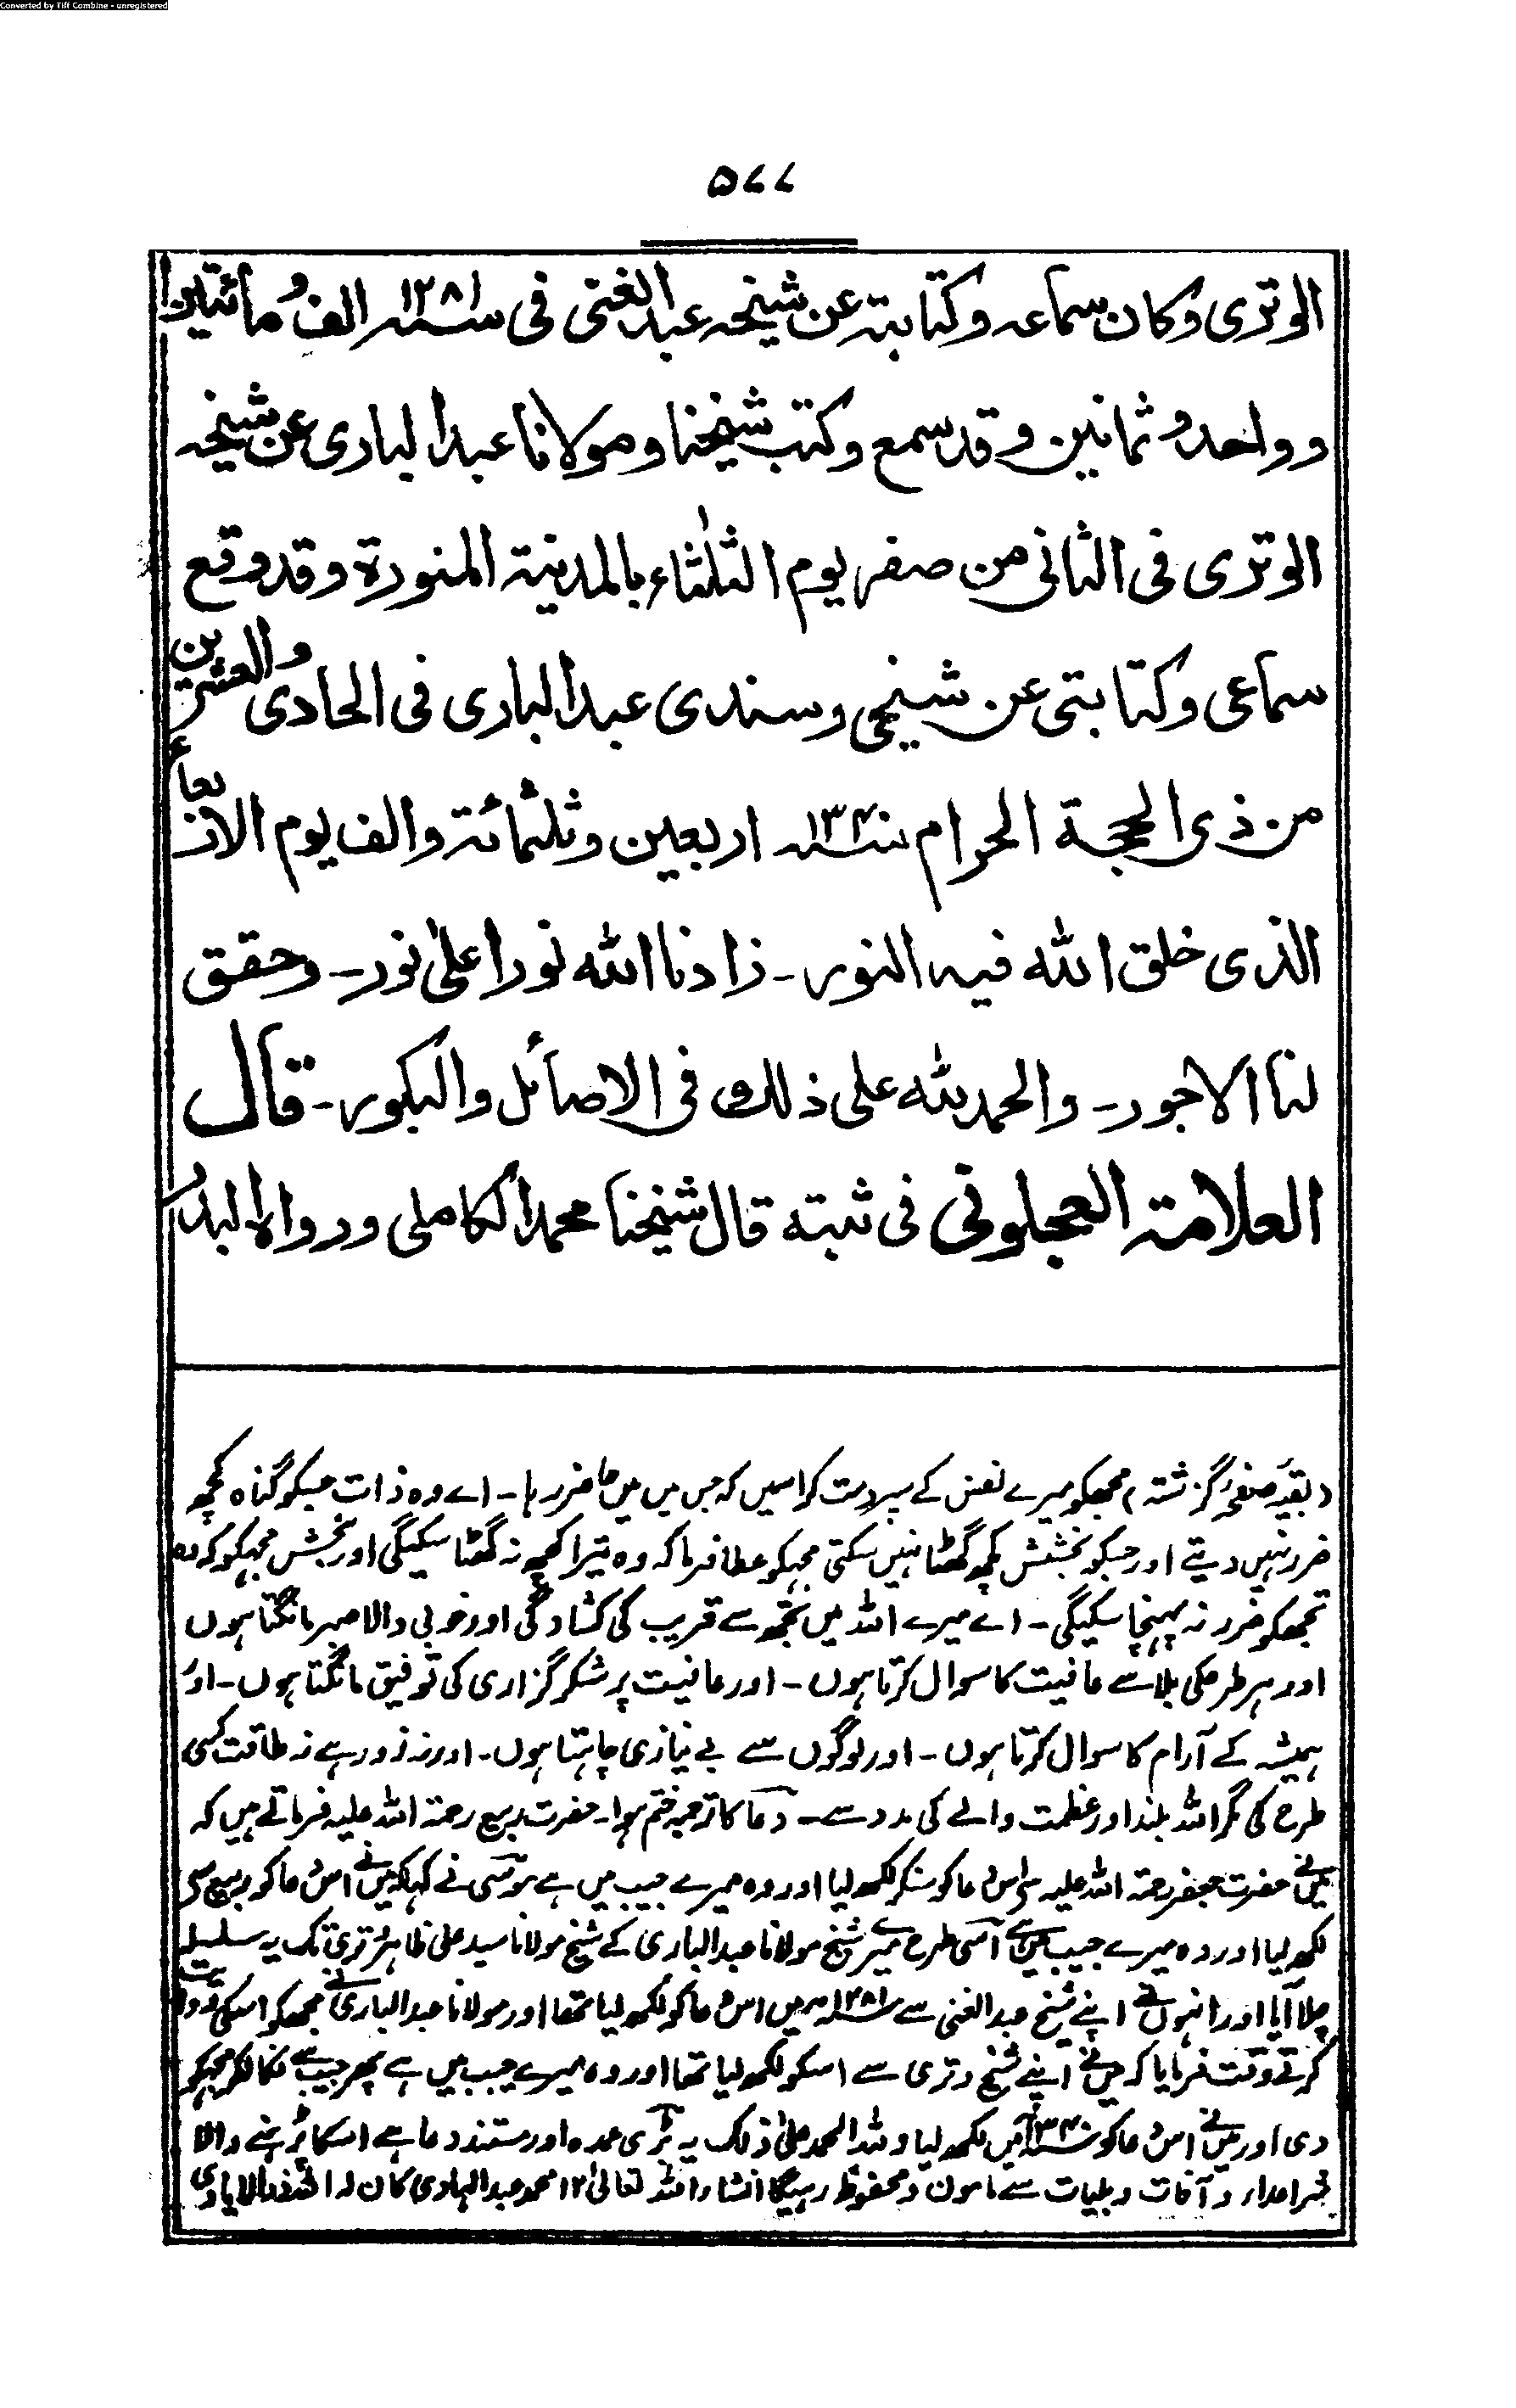 Converted by Tiff Combine - unregistered
۵۷۷
الوتری وکان سماعہ وکتابتہ عن شیخہ عبد الغنی فی سنہ ۱۲۸۱ الف ومائتین
وواحد وثمانین وقد سمع وکتب شیخنا ومولانا عبد الباری عن شیخہ
الوتری فی الثانی من صفر یوم الثلثاء بالمدینۃ المنورۃ وقد وقع
سماعی وکتابتی عن شیخی وسندی عبد الباری فی الحادی والعشرین
من ذی الحجۃ الحرام سنہ ۱۳۴۰ اربعین وثلثمائۃ والف یوم الاربعاء
الذی خلق اللہ فیہ النور ۔ زادنا اللہ نورا علیٰ نور ۔ وحقق
لنا الاجور ۔ والحمد للہ علی ذلک فی الاصائل والبکور ۔ قال
العلامۃ العجلونی فی ثبتہ قال شیخنا محمد الکاملی ورواہ البدر
(بقیہ صفحۂ گزشتہ) مجھکو میرے نفس کے سپرد مت کر اسمیں کہ جس میں میں حاضر رہا ۔ اے وہ ذات جسکو گناہ کچھ
ضرر نہیں دیتے اور جسکو بخشش کچھ گھٹا نہیں سکتی مجہکو عطا فرما کہ وہ تیرا کچھ نہ گھٹا سکیگی اور بخش مجہکو کہ وہ
تجھکو ضرر نہ پہنچا سکیگی ۔ اے میرے اللہ میں تجھ سے قریب کی کشادگی اور خوبی والا صبر مانگتا ہوں
اور ہر طرحکی بلا سے عافیت کا سوال کرتا ہوں ۔ اور عافیت پر شکر گزاری کی توفیق مانگتا ہوں ۔ اور
ہمیشہ کے آرام کا سوال کرتا ہوں ۔ اور لوگوں سے بے نیازی چاہتا ہوں ۔ اور نہ زور ہے نہ طاقت کسی
طرح کی مگر اللہ بلند اور عظمت والے کی مدد سے ۔ دعا کا ترجمہ ختم ہوا ۔ حضرت ربیع رحمۃ اللہ علیہ فرماتے ہیں کہ
میں نے حضرت جعفر رحمۃ اللہ علیہ سے اس دعا کو سنکر لکھ لیا اور وہ میرے جیب میں ہے موسی نے کہا کہ میں نے اس دعا کو ربیع سے
لکھ لیا اور وہ میرے جیب میں ہے اسی طرح میرے شیخ مولانا عبد الباری کے شیخ مولانا سید علی ظاہر وتری تک یہ سلسلہ
چلا آیا اور انہوں نے اپنے شیخ عبد الغنی سے سنہ ۱۲۸۱ میں اس دعا کو لکھ لیا تھا اور مولانا عبد الباری نے مجھکو اسکی روایت
کرتے وقت فرمایا کہ میں نے اپنے شیخ وتری سے اسکو لکھ لیا تھا اور وہ میرے جیب میں ہے پھر جیب سے نکالکر مجہکو
دی اور میں نے اس دعا کو سنہ ۱۳۴۰ میں لکھ لیا وللہ الحمد علیٰ ذلک یہ بڑی عمدہ اور مستند دعا ہے اسکا پڑہنے والا
شر اعداء و آفات و بلیات سے مامون و محفوظ رہیگا انشاء اللہ تعالیٰ ۱۲ محمد عبد الہادی کان لہ اللہ